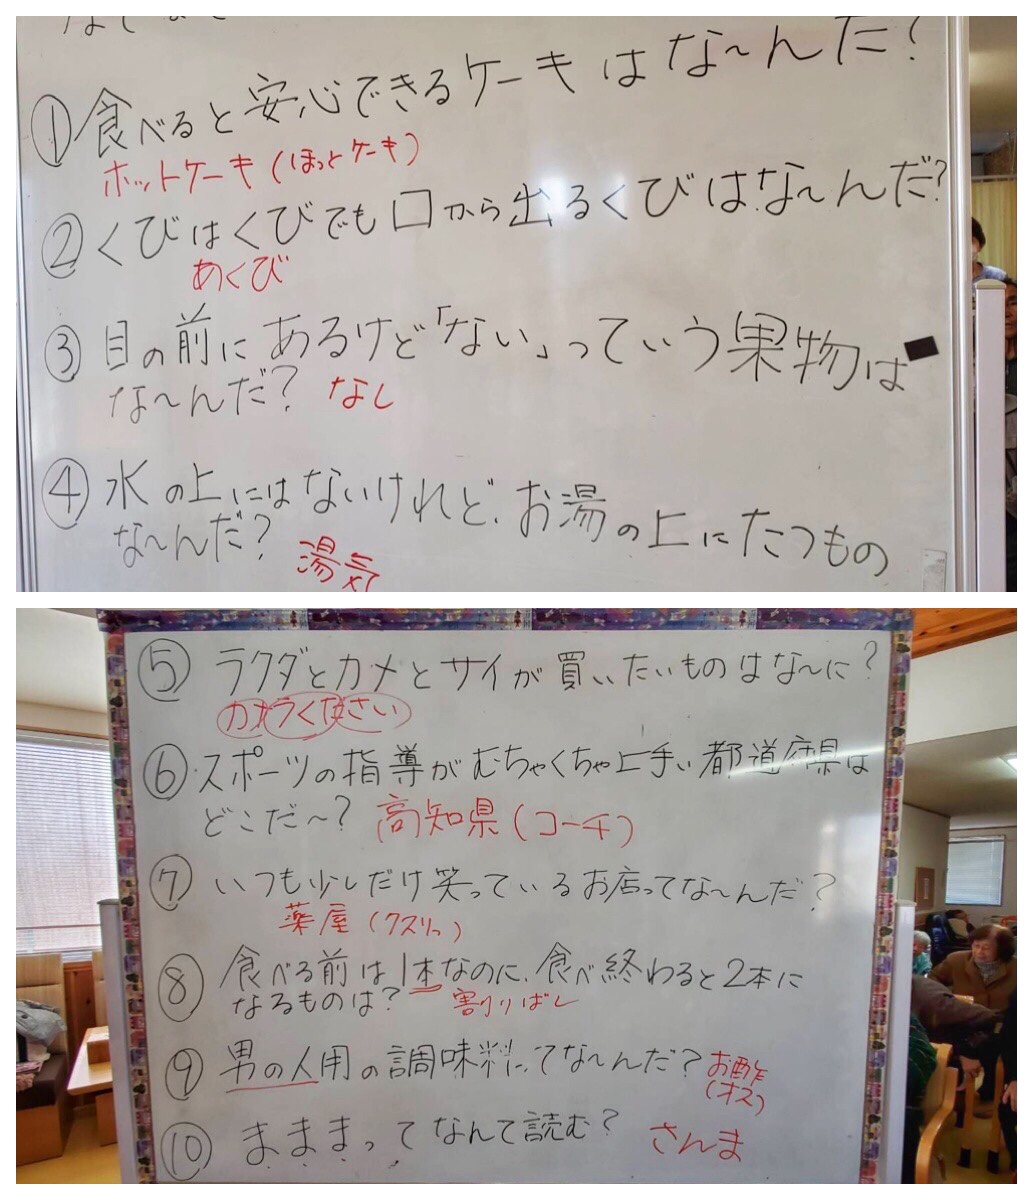 ① 食べると安心できるケーキはな〜んだ?
ホットケーキ(ほっとケーキ)
② くびはくびでも口から出るくびはな〜んだ?
あくび
③ 目の前にあるけど「ない」っていう果物は
な〜んだ? なし
④ 水の上にはないけれど、お湯の上にたつもの
な〜んだ? 湯気
⑤ ラクダとカメとサイが買いたいものはな〜に?
⑥ スポーツの指導がむちゃくちゃ上手い都道府県は
どこだ〜? 高知県(コーチ)
⑦ いつも少しだけ笑っているお店ってな〜んだ?
薬屋(クスリっ)
⑧ 食べる前は1本なのに、食べ終わると2本に
なるものは? 割りばし
⑨ 男の人用の調味料ってな〜んだ? お酢
(オス)
⑩ まままってなんて読む? さんま